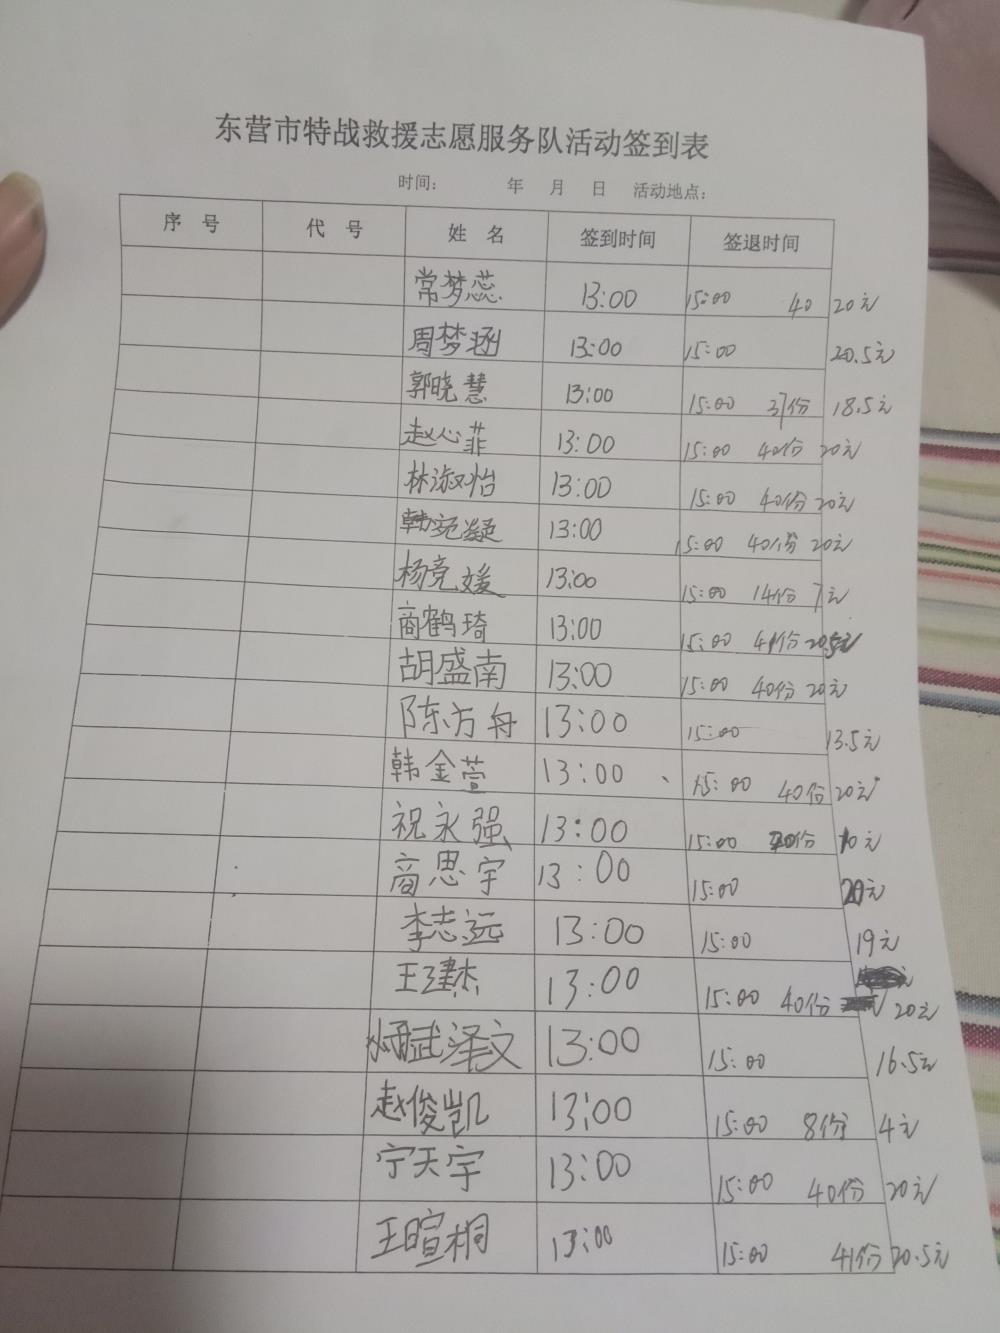 东营市特战救援志愿服务队活动签到表
时间： 年 月 日 活动地点：
序 号 代 号 姓 名 签到时间 签退时间
常梦蕊 13:00 15:00 40 20元
周梦涵 13:00 15:00 20.5元
郭晓慧 13:00 15:00 37份 18.5元
赵心菲 13:00 15:00 40份 20元
林淑怡 13:00 15:00 40份 20元
韩宛凝 13:00 15:00 40份 20元
杨竞媛 13:00 15:00 14份 7元
商鹤琦 13:00 15:00 41份 20.5元
胡盛南 13:00 15:00 40份 20元
陈方舟 13:00 15:00 13.5元
韩金萱 13:00 15:00 40份 20元
祝永强 13:00 15:00 份 10元
商思宇 13:00 15:00 20元
李志远 13:00 15:00 19元
王建杰 13:00 15:00 40份 20元
泽文 13:00 15:00 16.5元
赵俊凯 13:00 15:00 8份 4元
宁天宇 13:00 15:00 40份 20元
王暄桐 13:00 15:00 41份 20.5元